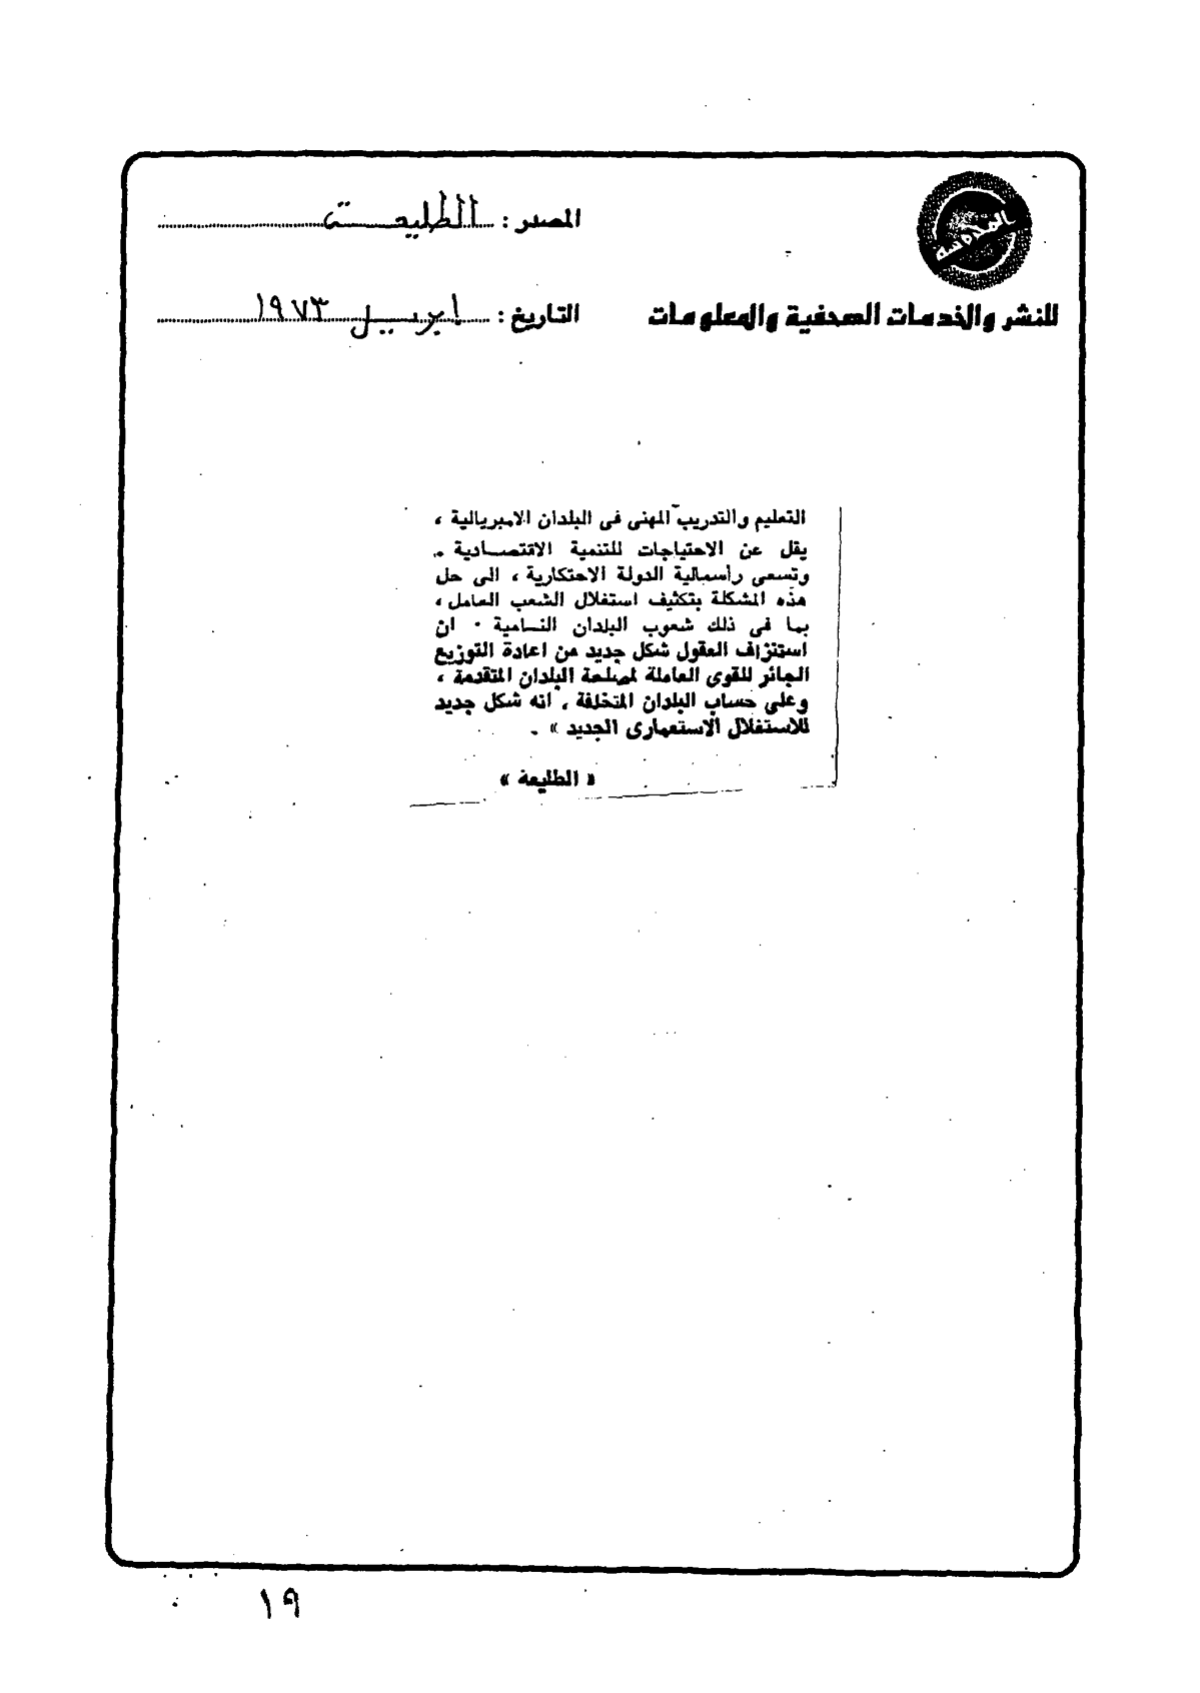 المصدر : الطليعة
للنشر والخدمات الصحفية والمعلومات
التاريخ : ابريل ١٩٧٣
التعليم والتدريب المهنى فى البلدان الامبريالية ،
يقل عن الاحتياجات للتنمية الاقتصادية .
وتسعى رأسمالية الدولة الاحتكارية ، الى حل
هذه المشكلة بتكثيف استغلال الشعب العامل ،
بما فى ذلك شعوب البلدان النامية . ان
استنزاف العقول شكل جديد من اعادة التوزيع
الجائر للقوى العاملة لمصلحة البلدان المتقدمة ،
وعلى حساب البلدان المتخلفة ، انه شكل جديد
للاستغلال الاستعمارى الجديد » .
« الطليعة »
١٩